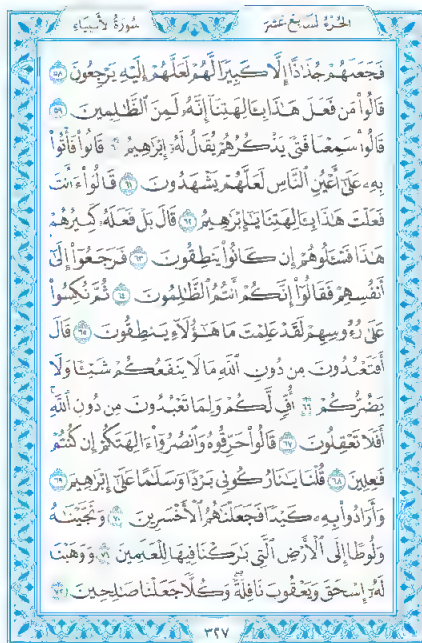 الجزء السابع عشر
سورة الأنبياء
فَجَعَلَهُمْ جُذَٰذًا إِلَّا كَبِيرًا لَّهُمْ لَعَلَّهُمْ إِلَيْهِ يَرْجِعُونَ ٥٨
قَالُوا۟ مَن فَعَلَ هَٰذَا بِـَٔالِهَتِنَآ إِنَّهُۥ لَمِنَ ٱلظَّٰلِمِينَ ٥٩
قَالُوا۟ سَمِعْنَا فَتًى يَذْكُرُهُمْ يُقَالُ لَهُۥٓ إِبْرَٰهِيمُ ٦٠ قَالُوا۟ فَأْتُوا۟
بِهِۦ عَلَىٰٓ أَعْيُنِ ٱلنَّاسِ لَعَلَّهُمْ يَشْهَدُونَ ٦١ قَالُوٓا۟ ءَأَنتَ
فَعَلْتَ هَٰذَا بِـَٔالِهَتِنَا يَٰٓإِبْرَٰهِيمُ ٦٢ قَالَ بَلْ فَعَلَهُۥ كَبِيرُهُمْ
هَٰذَا فَسْـَٔلُوهُمْ إِن كَانُوا۟ يَنطِقُونَ ٦٣ فَرَجَعُوٓا۟ إِلَىٰٓ
أَنفُسِهِمْ فَقَالُوٓا۟ إِنَّكُمْ أَنتُمُ ٱلظَّٰلِمُونَ ٦٤ ثُمَّ نُكِسُوا۟
عَلَىٰ رُءُوسِهِمْ لَقَدْ عَلِمْتَ مَا هَٰٓؤُلَآءِ يَنطِقُونَ ٦٥ قَالَ
أَفَتَعْبُدُونَ مِن دُونِ ٱللَّهِ مَا لَا يَنفَعُكُمْ شَيْـًٔا وَلَا
يَضُرُّكُمْ ٦٦ أُفٍّ لَّكُمْ وَلِمَا تَعْبُدُونَ مِن دُونِ ٱللَّهِ
أَفَلَا تَعْقِلُونَ ٦٧ قَالُوا۟ حَرِّقُوهُ وَٱنصُرُوٓا۟ ءَالِهَتَكُمْ إِن كُنتُمْ
فَٰعِلِينَ ٦٨ قُلْنَا يَٰنَارُ كُونِى بَرْدًا وَسَلَٰمًا عَلَىٰٓ إِبْرَٰهِيمَ ٦٩
وَأَرَادُوا۟ بِهِۦ كَيْدًا فَجَعَلْنَٰهُمُ ٱلْأَخْسَرِينَ ٧٠ وَنَجَّيْنَٰهُ
وَلُوطًا إِلَى ٱلْأَرْضِ ٱلَّتِى بَٰرَكْنَا فِيهَا لِلْعَٰلَمِينَ ٧١ وَوَهَبْنَا
لَهُۥٓ إِسْحَٰقَ وَيَعْقُوبَ نَافِلَةً وَكُلًّا جَعَلْنَا صَٰلِحِينَ ٧٢
٣٢٧